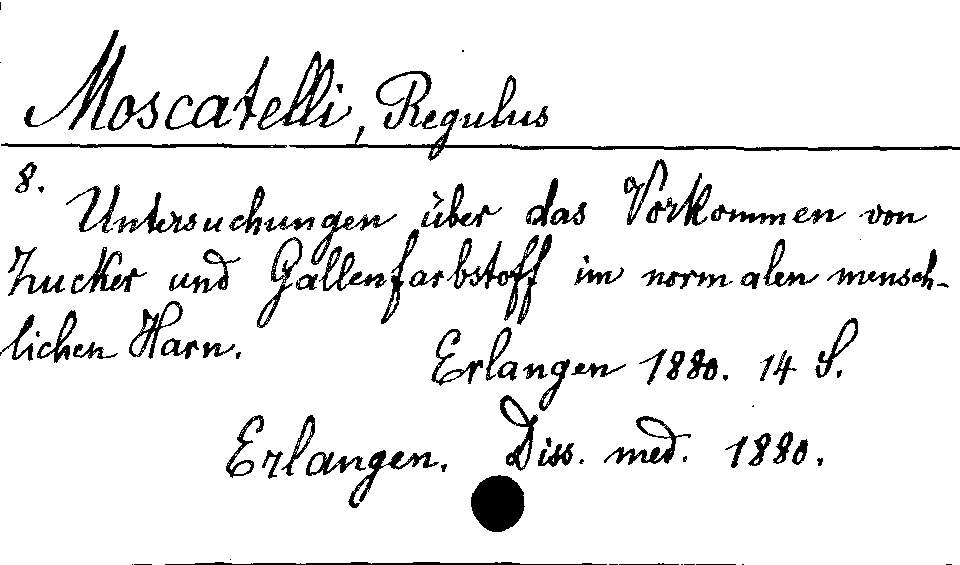 Moscatelli, Regulus
8.
Untersuchungen über das Vorkommen von
Zucker und Gallenfarbstoff im normalen mensch-
lichen Harn.
Erlangen 1880. 14 S.
Erlangen. Diss. med. 1880.